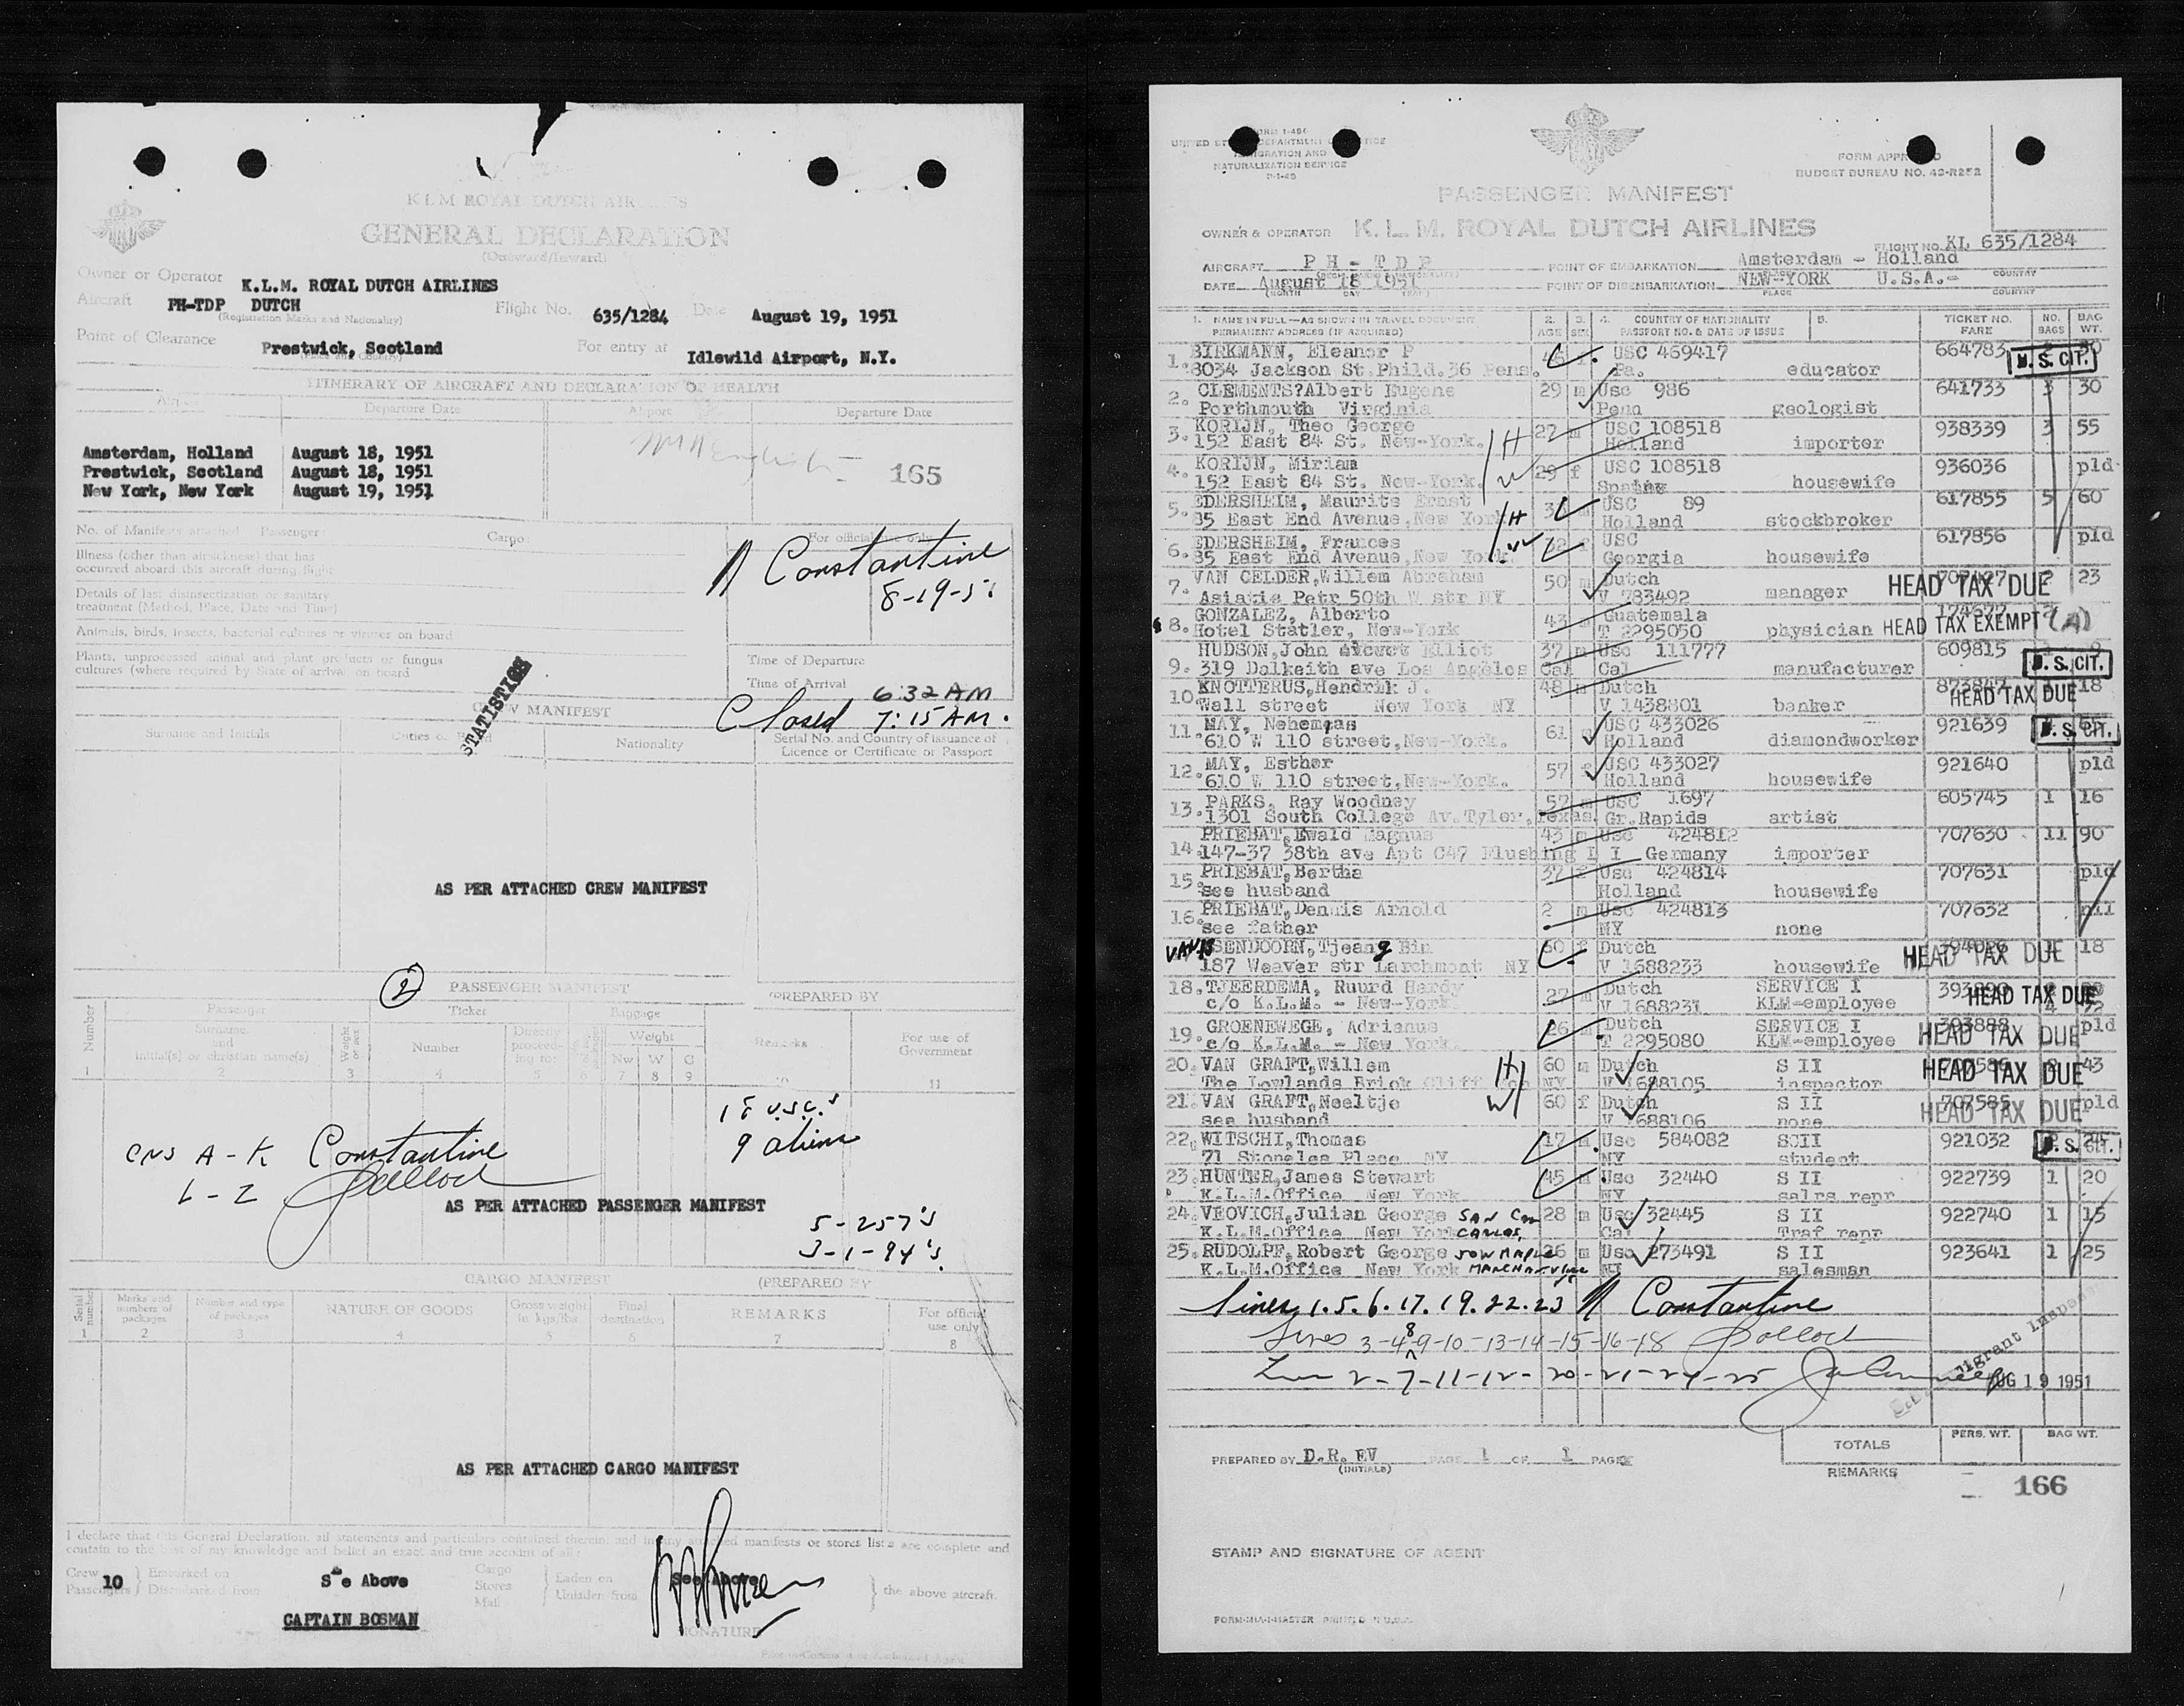 K L M ROYAL DUTCH AIRLINES
GENERAL DECLARATION
(Outward/Inward)
Owner or Operator K.L.M. ROYAL DUTCH AIRLINES
Aircraft PH-TDP DUTCH Flight No. 635/1284 Date August 19, 1951
(Registration Marks and Nationality)
Point of Clearance Prestwick, Scotland For entry at Idlewild Airport, N.Y.
(Place and Country)
ITINERARY OF AIRCRAFT AND DECLARATION OF HEALTH
Airport Departure Date Airport Departure Date
Amsterdam, Holland August 18, 1951
Prestwick, Scotland August 18, 1951
New York, New York August 19, 1951
165
No. of Manifests attached Passenger: Cargo:
For official use only
Illness (other than airsickness) that has
occurred aboard this aircraft during flight
N Constantine
8-19-51
Details of last disinsectization or sanitary
treatment (Method, Place, Date and Time)
Animals, birds, insects, bacterial cultures or viruses on board
Plants, unprocessed animal and plant products or fungus
cultures (where required by State of arrival) on board
Time of Departure
Time of Arrival 6:32 AM
Closed 7:15 AM.
STATISTICS
CREW MANIFEST
Surname and Initials Duties on Board Nationality Serial No. and Country of issuance of
Licence or Certificate or Passport
AS PER ATTACHED CREW MANIFEST
2 PASSENGER MANIFEST (PREPARED BY
Number Passenger Ticket Baggage
Surname
and
initial(s) or christian name(s)
Number Directly
proceeding to:
Weight
Nw W C
Remarks
For use of
Government
1 2 3 4 5 6 7 8 9 10 11
18 U.S.C.'s
9 aliens
CNS A-K Constantine
L-Z Pollock
AS PER ATTACHED PASSENGER MANIFEST
5-257's
3-1-94's
CARGO MANIFEST (PREPARED BY
Serial number Marks and numbers of packages Number and type of packages NATURE OF GOODS Gross weight in kgs/lbs Final destination REMARKS For official use only
1 2 3 4 5 6 7 8
AS PER ATTACHED CARGO MANIFEST
I declare that this General Declaration, all statements and particulars contained therein, and in any attached manifests or stores lists are complete and
contain to the best of my knowledge and belief an exact and true account of all:
Crew 10 Embarked on See Above Cargo Laden on See Above
Passengers Disembarked from Stores Unladen from the above aircraft.
Mail
CAPTAIN BOSMAN
SIGNATURE
Pilot-in-Command or Authorized Agent
FORM I-466
UNITED STATES DEPARTMENT OF JUSTICE
IMMIGRATION AND
NATURALIZATION SERVICE
FORM APPROVED
BUDGET BUREAU NO. 43-R252
PASSENGER MANIFEST
OWNER & OPERATOR K. L. M. ROYAL DUTCH AIRLINES
FLIGHT NO. KL 635/1284
AIRCRAFT PH - TDP POINT OF EMBARKATION Amsterdam - Holland
DATE August 18 1951 POINT OF DISEMBARKATION NEW-YORK U.S.A.-
(MONTH DAY YEAR) PLACE COUNTRY
1. NAME IN FULL—AS SHOWN IN TRAVEL DOCUMENT 2. 3. 4. COUNTRY OF NATIONALITY 5. TICKET NO. NO. BAG
PERMANENT ADDRESS (IF REQUIRED) AGE SEX PASSPORT NO. & DATE OF ISSUE FARE BAGS WT.
1. BIRKMANN, Eleanor P USC 469417 664783 U.S. CIT.
8034 Jackson St.Phild.36 Pens. Pa. educator
2. CLEMENTS?Albert Eugene 29 m Usc 986 641733 3 30
Porthmouth Virginia Penn geologist
3. KORIJN, Theo George 27 m USC 108518 938339 3 55
152 East 84 St. New-York. H Holland importer
4. KORIJN, Miriam 29 f USC 108518 936036 pld
152 East 84 St. New-York. W housewife
5. EDERSHEIM, Maurits Ernst USC 89 617855 5 60
85 East End Avenue,New York H Holland stockbroker
6. EDERSHEIM, Frances USC 617856 pld
85 East End Avenue,New York. W Georgia housewife
7. VAN CELDER,Willem Abraham 50 m Dutch HEAD TAX DUE 2 23
Asiatic Petr 50th W str NY V 783492 manager
8. GONZALEZ, Alberto 43 Guatemala
Hotel Statler, New-York T 2295050 physician HEAD TAX EXEMPT (A)
9. HUDSON,John Elliot 37 m Usc 111777 609815
319 Dalkeith ave Los Angeles Cal Cal manufacturer U.S. CIT.
10. KNOTTERUS,Hendrik J. 48 m Dutch HEAD TAX DUE 18
Wall street New York NY V 1438801 banker
11. MAY, Nehemeas 61 m USC 433026 921639 U.S. CIT.
610 W 110 street,New-York. Holland diamondworker
12. MAY, Esther 57 f USC 433027 921640 pld
610 W 110 street,New-York. Holland housewife
13. PARKS, Ray Woodney 57 m USC 1697 605745 1 16
1301 South College Av.Tyler,Texas. Gr.Rapids artist
14. PRIEBAT,Ewald Magnus 43 m Usc 424812 707630 11 90
147-37 38th ave Apt C47 Flushing L I Germany importer
15. PRIEBAT,Bertha 37 f Usc 424814 707631 pld
see husband Holland housewife
16. PRIEBAT,Dennis Arnold 2 m Usc 424813 707632 nil
see father NY none
VAN ISSENDOORN,Tjeang Bin 60 f Dutch HEAD TAX DUE 18
187 Weaver str Larchmont NY V 1688233 housewife
18. TJEERDEMA, Ruurd Hardy 27 m Dutch SERVICE I HEAD TAX DUE
c/o K.L.M. - New-York. V 1688231 KLM-employee 4 72
19. GROENEWEGE, Adrianus 26 m Dutch SERVICE I 393888 HEAD TAX DUE pld
c/o K.L.M. - New York. T 2295080 KLM-employee
20. VAN GRAFT,Willem H 60 m Dutch S II HEAD TAX DUE 43
The Lowlands Brick Cliff NY V 1688105 inspector
21. VAN GRAFT,Neeltje W 60 f Dutch S II 707585 HEAD TAX DUE pld
see husband V 1688106 none
22. WITSCHI,Thomas 17 m Usc 584082 SCII 921032 U.S. CIT.
71 Stonelea Place NY NY student
23. HUNTER,James Stewart 45 m Usc 32440 S II 922739 1 20
K.L.M.Office New York NY salrs repr
24. VEOVICH,Julian George SAN CARLOS, 28 m Usc 32445 S II 922740 1 15
K.L.M.Office New York Cal Traf repr
25. RUDOLPF,Robert George 26 m Usc 273491 S II 923641 1 25
K.L.M.Office New York NY salesman
Lines 1.5.6.17.19.22.23 N Constantine
Lines 3-4-8-9-10-13-14-15-16-18 Pollock
Line 2-7-11-12-20-21-24-25
Immigrant Inspector
AUG 19 1951
TOTALS PERS. WT. BAG WT.
PREPARED BY D.R. EV PAGE 1 OF 1 PAGES
(INITIALS)
REMARKS
166
STAMP AND SIGNATURE OF AGENT